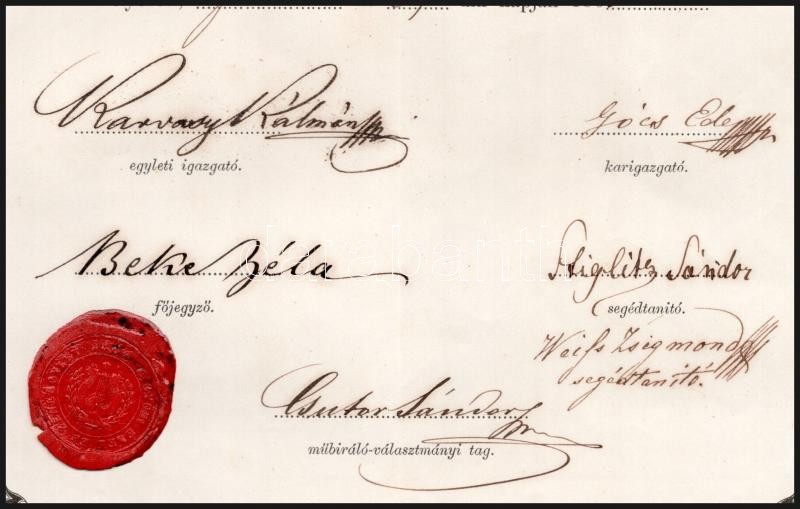 Karvasy Kálmán
egyleti igazgató.
Gócs Ede
karigazgató.
Beke Béla
főjegyző.
Stiglitz Sándor
segédtanitó.
Weiss Zsigmond
segédtanitó.
Csutor Sándor
műbiráló-választmányi tag.